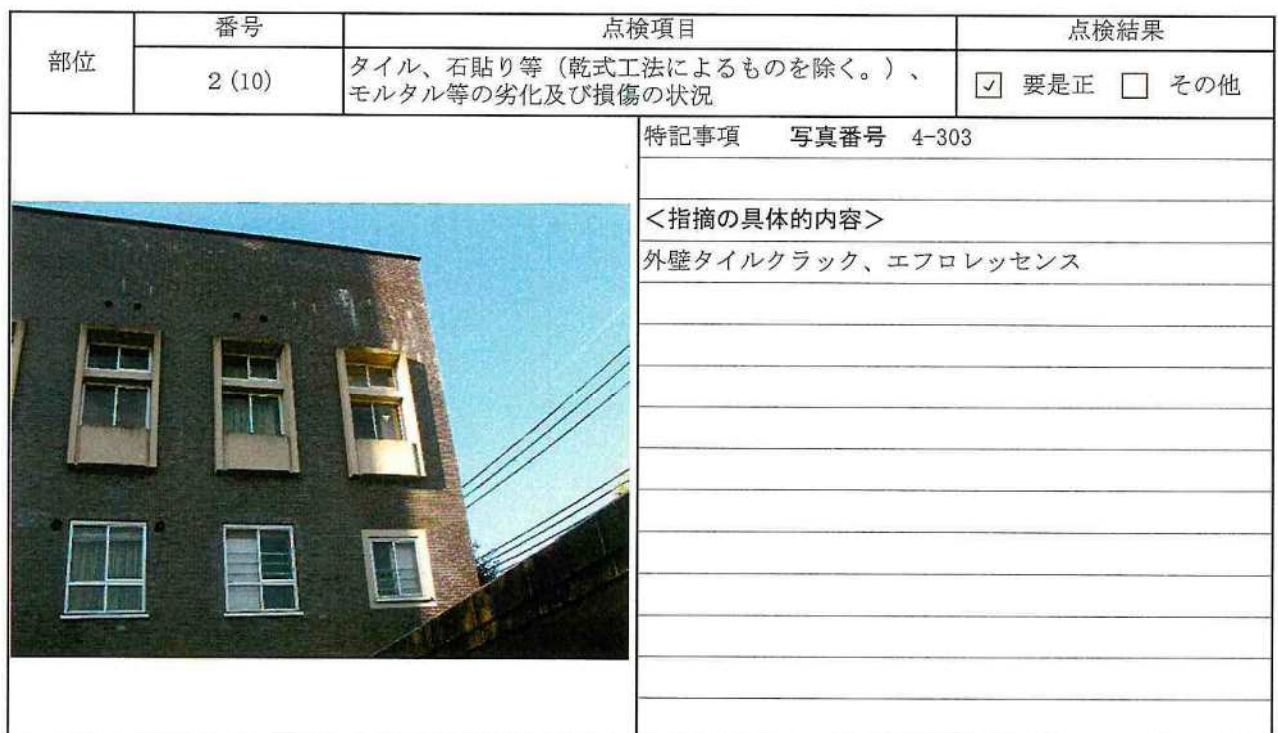 部位
番号
点検項目
点検結果
2 (10)
タイル、石貼り等（乾式工法によるものを除く。）、
モルタル等の劣化及び損傷の状況
☑ 要是正 ☐ その他
特記事項 写真番号 4-303
＜指摘の具体的内容＞
外壁タイルクラック、エフロレッセンス